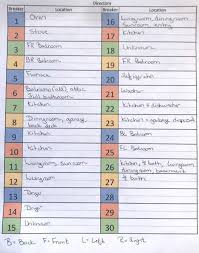 Directory
Breaker Location Breaker Location
1 Oven
2 Stove
3 FR Bedroom
4 BR Bedroom
5 Furnace
6 Bedrooms (all), attic, full bathroom
7 Kitchen
8 Dining room, garage, back deck
9 Kitchen
10 Kitchen
11 Livingroom, sunroom
12 Livingroom
13 Dryer
14 Dryer
15 Unknown
16 Livingroom, diningroom, sunroom, entry
17 Kitchen
18 Unknown
19 FR Bedroom
20 Refrigerator
21 Washer
22 Kitchen + dishwasher
23 Kitchen + garbage disposal
24 BL Bedroom
25 FL Bedroom
26 Kitchen, ½ bath, livingroom, diningroom, basement
27 ½ bath
28
29
30
B=Back F=Front L=Left R=Right